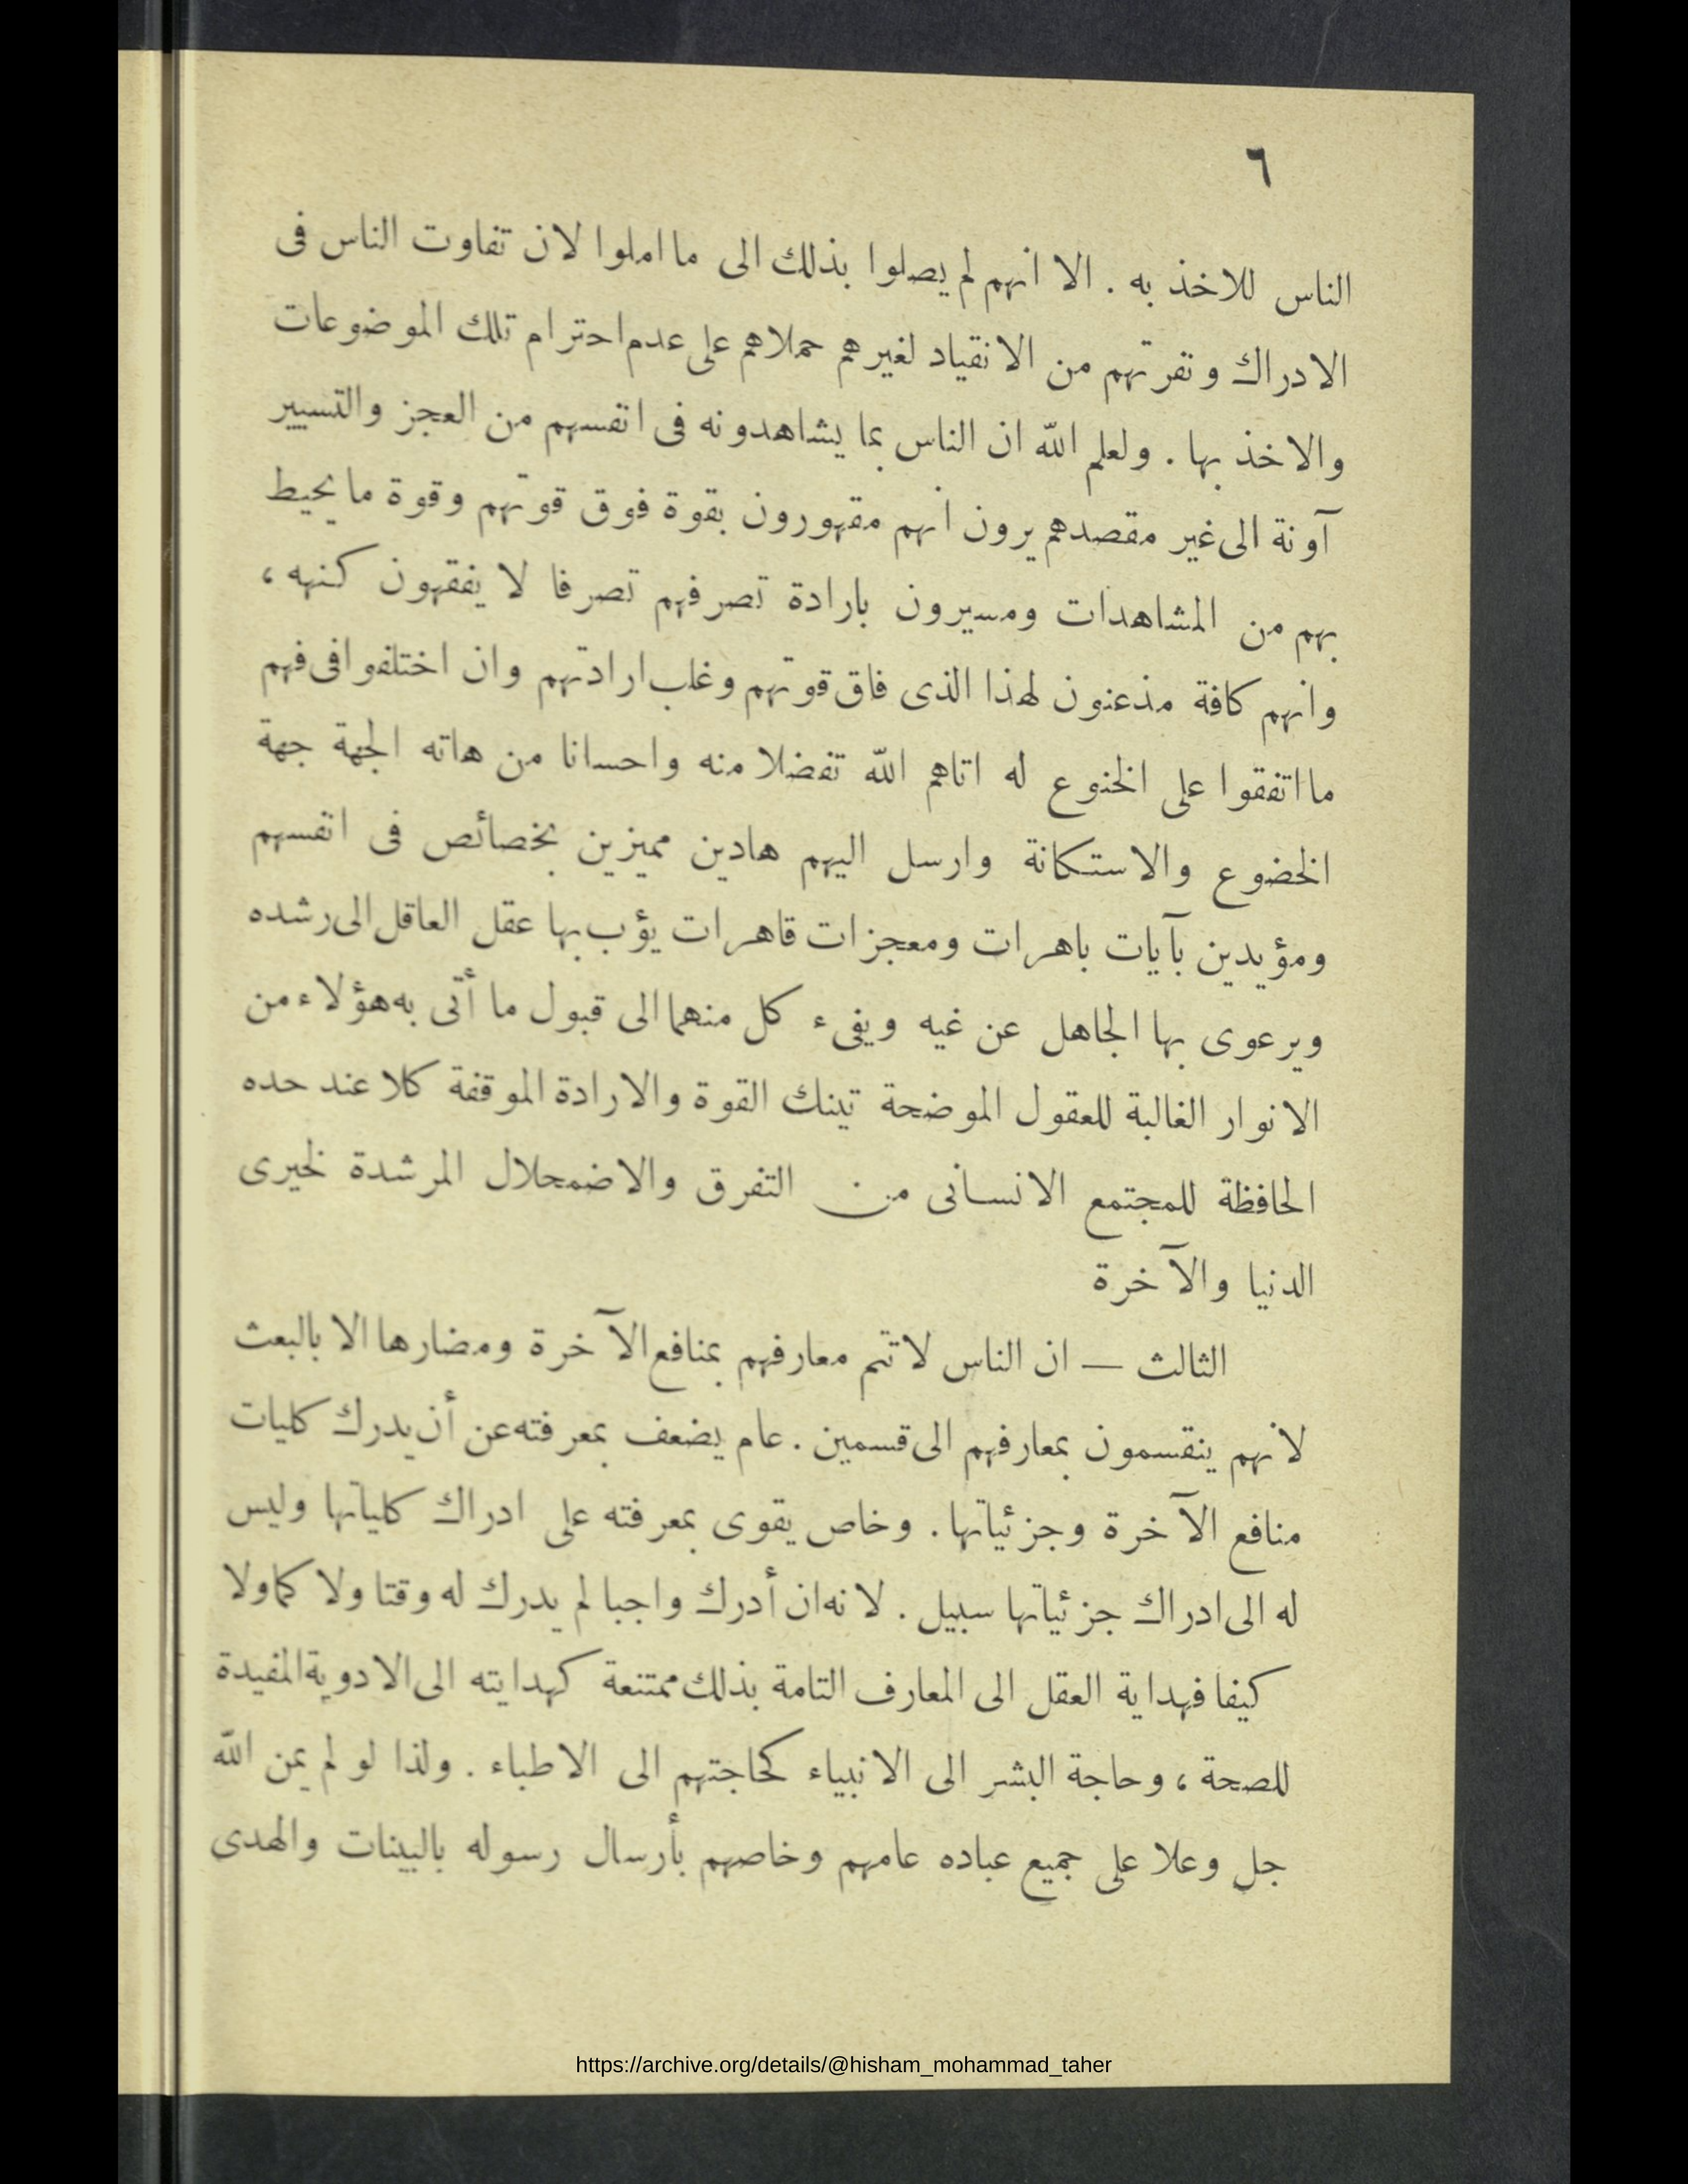 ٦
الناس للاخذ به . الا انهم لم يصلوا بذلك الى ما املوا لان تفاوت الناس فى
الادراك ونفرتهم من الانقياد لغيرهم حملاهم على عدم احترام تلك الموضوعات
والاخذ بها . ولعلم الله ان الناس بما يشاهدونه فى انفسهم من العجز والتسيير
آونة الى غير مقصدهم يرون انهم مقهورون بقوة فوق قوتهم وقوة ما يحيط
بهم من المشاهدات ومسيرون بارادة تصرفهم تصرفا لا يفقهون كنهه ،
وانهم كافة مذعنون لهذا الذى فاق قوتهم وغلب ارادتهم وان اختلفوا فى فهم
ما اتفقوا على الخنوع له اتاهم الله تفضلا منه واحسانا من هاته الجهة جهة
الخضوع والاستكانة وارسل اليهم هادين مميزين بخصائص فى انفسهم
ومؤيدين بآيات باهرات ومعجزات قاهرات يؤب بها عقل العاقل الى رشده
ويرعوى بها الجاهل عن غيه ويفىء كل منهما الى قبول ما أتى به هؤلاء من
الانوار الغالبة للعقول الموضحة تينك القوة والارادة الموقفة كلا عند حده
الحافظة للمجتمع الانسانى من التفرق والاضمحلال المرشدة لخيرى
الدنيا والآخرة
الثالث — ان الناس لا تتم معارفهم بمنافع الآخرة ومضارها الا بالبعث
لانهم ينقسمون بمعارفهم الى قسمين . عام يضعف بمعرفته عن أن يدرك كليات
منافع الآخرة وجزئياتها . وخاص يقوى بمعرفته على ادراك كلياتها وليس
له الى ادراك جزئياتها سبيل . لانه ان أدرك واجبا لم يدرك له وقتا ولا كما ولا
كيفا فهداية العقل الى المعارف التامة بذلك ممتنعة كهدايته الى الادوية المفيدة
للصحة ، وحاجة البشر الى الانبياء كحاجتهم الى الاطباء . ولذا لو لم يمن الله
جل وعلا على جميع عباده عامهم وخاصهم بأرسال رسوله بالبينات والهدى
https://archive.org/details/@hisham_mohammad_taher